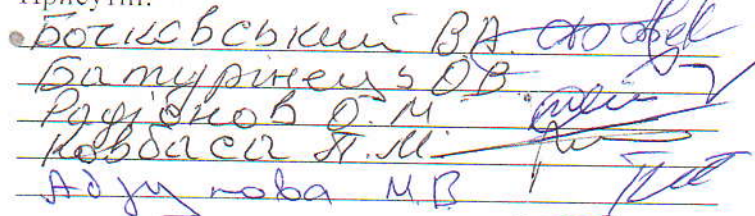 Присутні:
Бочковський В.А.
Батуринець О.В.
Радіонов О.М
Ковбаса П.М.
М.В